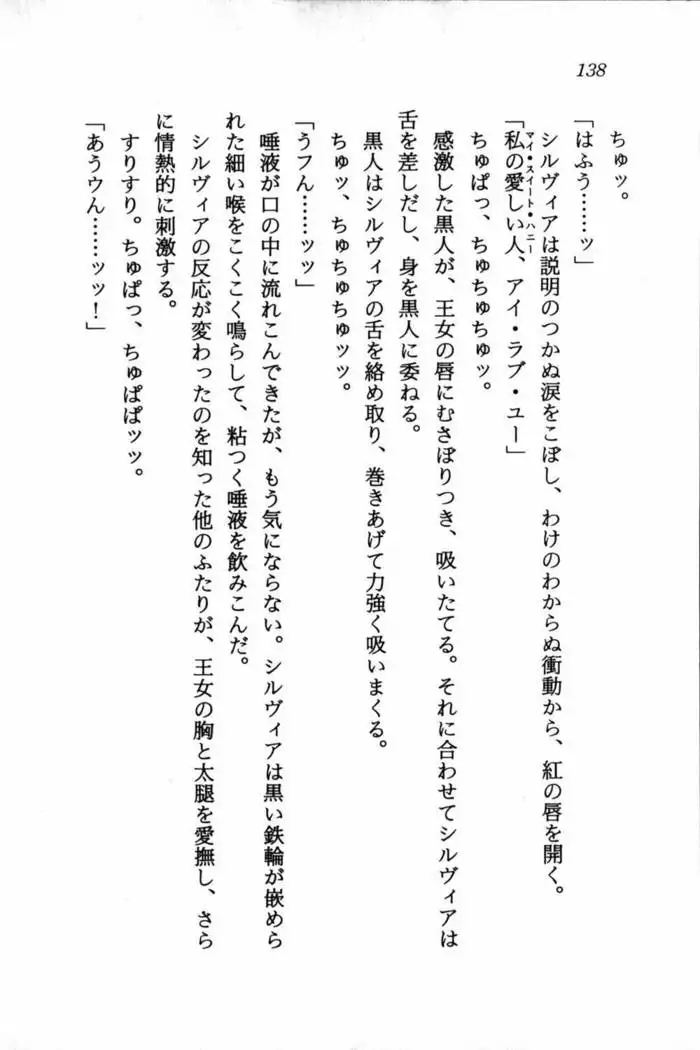 138
ちゅッ。
「はふう……ッ」
シルヴィアは説明のつかぬ涙をこぼし、わけのわからぬ衝動から、紅の唇を開く。
マイ・スイート・ハニー
「私の愛しい人、アイ・ラブ・ユー」
ちゅぱっ、ちゅちゅちゅッ。
感激した黒人が、王女の唇にむさぼりつき、吸いたてる。それに合わせてシルヴィアは
舌を差しだし、身を黒人に委ねる。
黒人はシルヴィアの舌を絡め取り、巻きあげて力強く吸いまくる。
ちゅッ、ちゅちゅちゅッッ。
「うフん……ッッ」
唾液が口の中に流れこんできたが、もう気にならない。シルヴィアは黒い鉄輪が嵌めら
れた細い喉をこくこく鳴らして、粘つく唾液を飲みこんだ。
シルヴィアの反応が変わったのを知った他のふたりが、王女の胸と太腿を愛撫し、さら
に情熱的に刺激する。
すりすり。ちゅぱっ、ちゅぱぱッッ。
「あうウん……ッッ！」